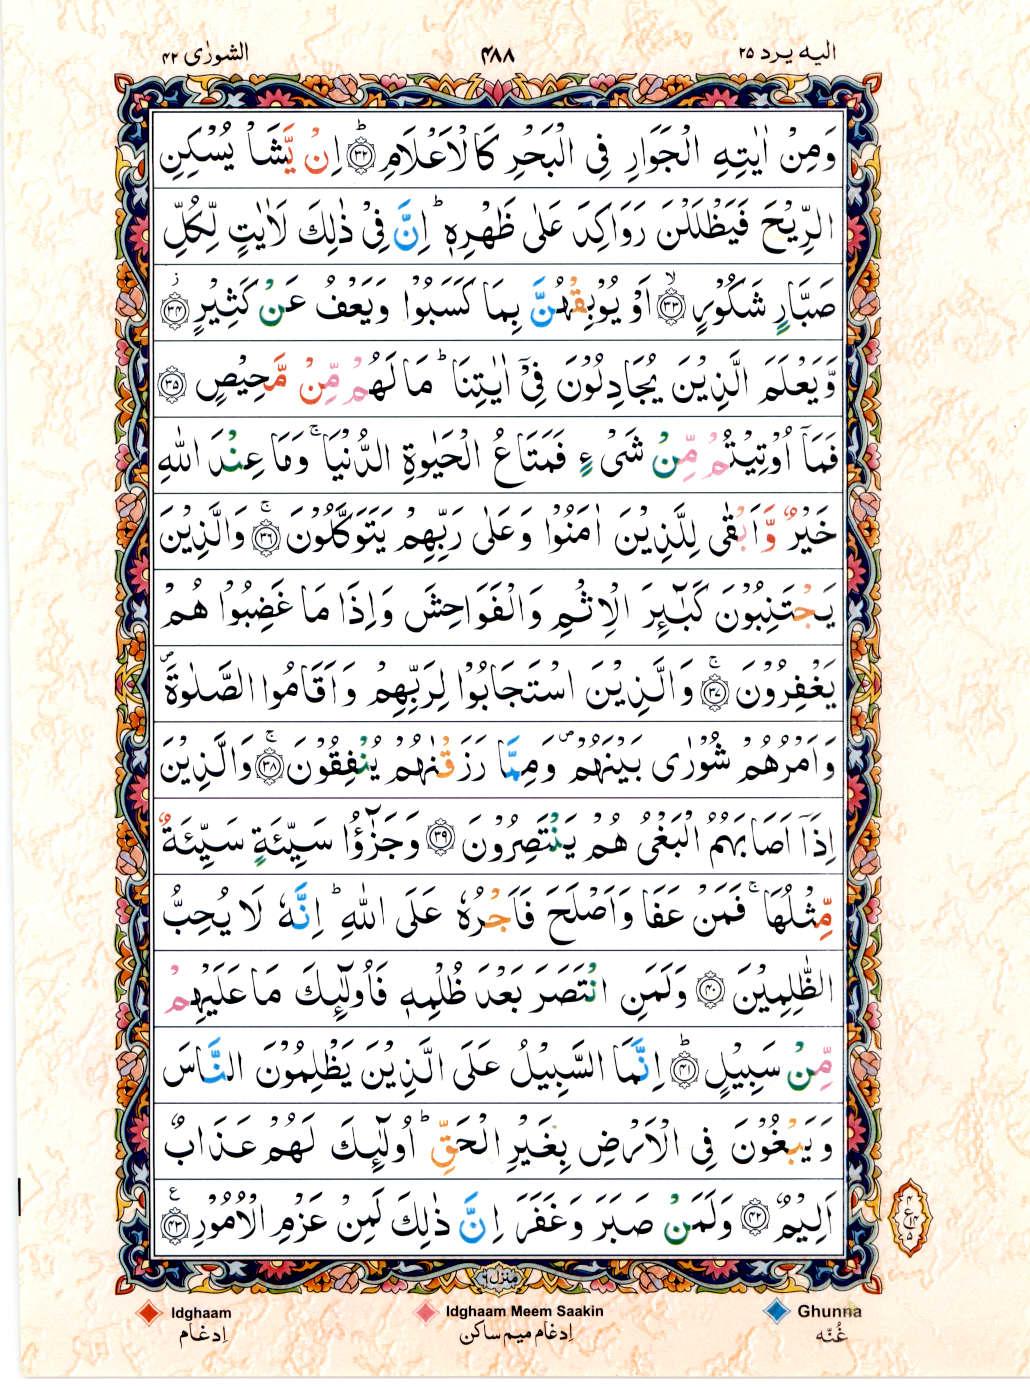 الیه یرد ۲۵
۴۸۸
الشورٰی ۴۲
وَمِنْ اٰیٰتِهِ الْجَوَارِ فِی الْبَحْرِ کَالْاَعْلَامِ ؕ﴿۳۲﴾ اِنْ یَّشَاْ یُسْکِنِ
الرِّیْحَ فَیَظْلَلْنَ رَوَاکِدَ عَلٰی ظَهْرِهٖ ؕ اِنَّ فِیْ ذٰلِکَ لَاٰیٰتٍ لِّکُلِّ
صَبَّارٍ شَکُوْرٍ ﴿ۙ۳۳﴾ اَوْ یُوْبِقْهُنَّ بِمَا کَسَبُوْا وَیَعْفُ عَنْ کَثِیْرٍ ﴿۫۳۴﴾
وَّیَعْلَمَ الَّذِیْنَ یُجَادِلُوْنَ فِیْۤ اٰیٰتِنَا ؕ مَا لَهُمْ مِّنْ مَّحِیْصٍ ﴿۳۵﴾
فَمَاۤ اُوْتِیْتُمْ مِّنْ شَیْءٍ فَمَتَاعُ الْحَیٰوةِ الدُّنْیَا ۚ وَمَا عِنْدَ اللّٰهِ
خَیْرٌ وَّاَبْقٰی لِلَّذِیْنَ اٰمَنُوْا وَعَلٰی رَبِّهِمْ یَتَوَکَّلُوْنَ ﴿ۚ۳۶﴾ وَالَّذِیْنَ
یَجْتَنِبُوْنَ کَبٰٓئِرَ الْاِثْمِ وَالْفَوَاحِشَ وَاِذَا مَا غَضِبُوْا هُمْ
یَغْفِرُوْنَ ﴿ۚ۳۷﴾ وَالَّذِیْنَ اسْتَجَابُوْا لِرَبِّهِمْ وَاَقَامُوا الصَّلٰوةَ ۪
وَاَمْرُهُمْ شُوْرٰی بَیْنَهُمْ ۪ وَمِمَّا رَزَقْنٰهُمْ یُنْفِقُوْنَ ﴿ۚ۳۸﴾ وَالَّذِیْنَ
اِذَاۤ اَصَابَهُمُ الْبَغْیُ هُمْ یَنْتَصِرُوْنَ ﴿۳۹﴾ وَجَزٰٓؤُا سَیِّئَةٍ سَیِّئَةٌ
مِّثْلُهَا ۚ فَمَنْ عَفَا وَاَصْلَحَ فَاَجْرُهٗ عَلَی اللّٰهِ ؕ اِنَّهٗ لَا یُحِبُّ
الظّٰلِمِیْنَ ﴿۴۰﴾ وَلَمَنِ انْتَصَرَ بَعْدَ ظُلْمِهٖ فَاُولٰٓئِکَ مَا عَلَیْهِمْ
مِّنْ سَبِیْلٍ ﴿ؕ۴۱﴾ اِنَّمَا السَّبِیْلُ عَلَی الَّذِیْنَ یَظْلِمُوْنَ النَّاسَ
وَیَبْغُوْنَ فِی الْاَرْضِ بِغَیْرِ الْحَقِّ ؕ اُولٰٓئِکَ لَهُمْ عَذَابٌ
اَلِیْمٌ ﴿۴۲﴾ وَلَمَنْ صَبَرَ وَغَفَرَ اِنَّ ذٰلِکَ لَمِنْ عَزْمِ الْاُمُوْرِ ﴿۴۳﴾ ع
منزل ۶
Idghaam
Idghaam Meem Saakin
Ghunna
اِدغام
اِدغام میم ساکن
غُنّه